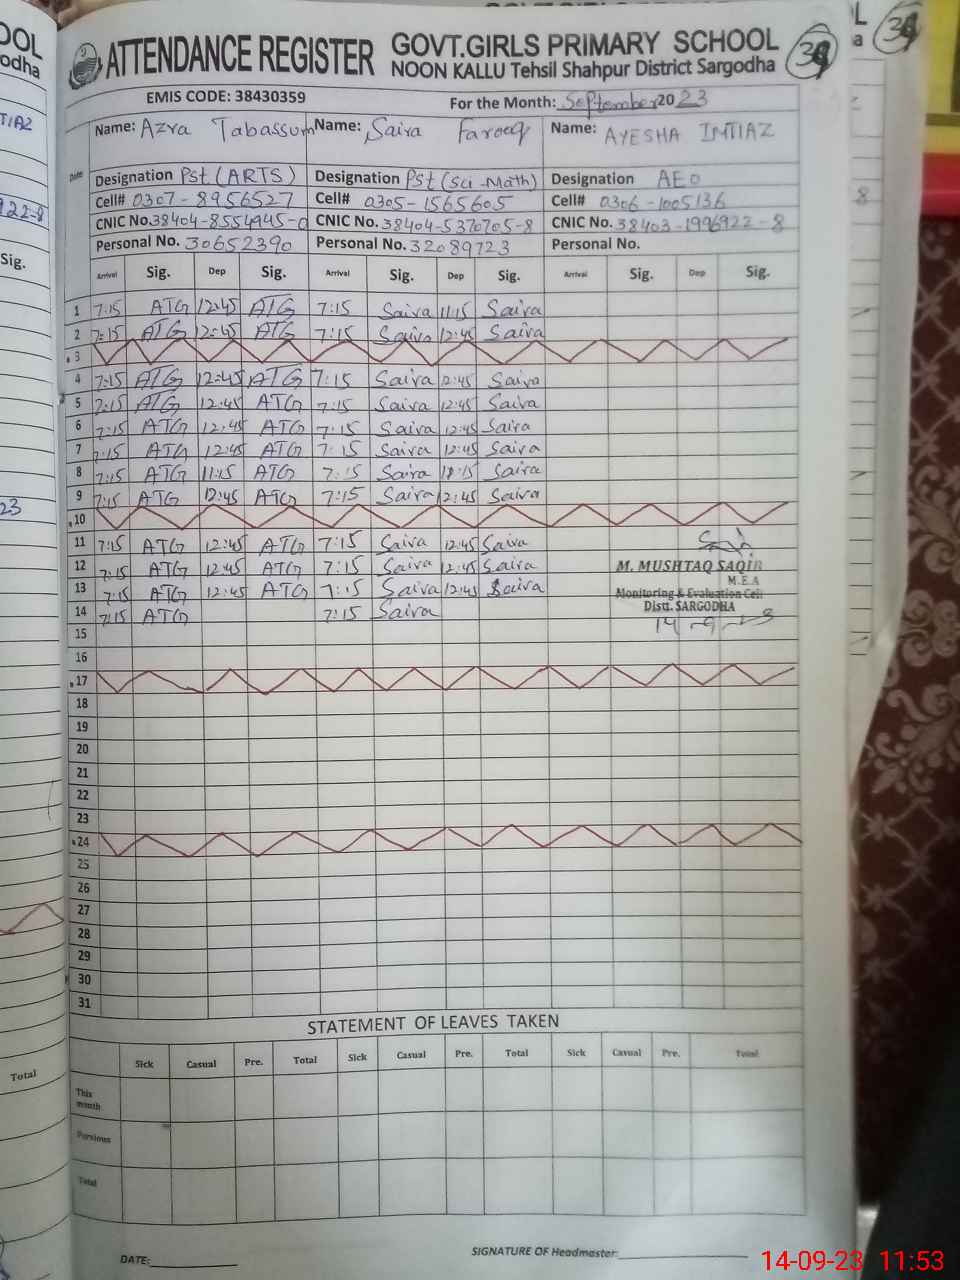 ATTENDANCE REGISTER GOVT.GIRLS PRIMARY SCHOOL
NOON KALLU Tehsil Shahpur District Sargodha
39
EMIS CODE: 38430359 For the Month: September 2023
Date
Name: Azra Tabassum Name: Saira Farooq Name: AYESHA IMTIAZ
Designation Pst (ARTS) Designation Pst (Sci-Math) Designation AEO
Cell# 0307-8956527 Cell# 0305-1565605 Cell# 0306-1005136
CNIC No. 38404-8554945-0 CNIC No. 38404-5370705-8 CNIC No. 38403-1996922-8
Personal No. 30652390 Personal No. 32089723 Personal No.
Arrival Sig. Dep Sig. Arrival Sig. Dep Sig. Arrival Sig. Dep Sig.
1 7:15 ATG 12:45 ATG 7:15 Saira 11:15 Saira
2 7:15 ATG 12:45 ATG 7:15 Saira 12:45 Saira
3
4 7:15 ATG 12:45 ATG 7:15 Saira 12:45 Saira
5 7:15 ATG 12:45 ATG 7:15 Saira 12:45 Saira
6 7:15 ATG 12:45 ATG 7:15 Saira 12:45 Saira
7 7:15 ATG 12:45 ATG 7:15 Saira 12:45 Saira
8 7:15 ATG 11:15 ATG 7:15 Saira 11:15 Saira
9 7:15 ATG 12:45 ATG 7:15 Saira 12:45 Saira
10
11 7:15 ATG 12:45 ATG 7:15 Saira 12:45 Saira
12 7:15 ATG 12:45 ATG 7:15 Saira 12:45 Saira
M. MUSHTAQ SAQIB
M.E.A
13 7:15 ATG 12:45 ATG 7:15 Saira 12:45 Saira
Monitoring & Evaluation Cell
Distt. SARGODHA
14 7:15 ATG 7:15 Saira
14-9-23
15
16
17
18
19
20
21
22
23
24
25
26
27
28
29
30
31
STATEMENT OF LEAVES TAKEN
Sick Casual Pre. Total Sick Casual Pre. Total Sick Casual Pre. Total
This month
Pervious
Total
DATE: SIGNATURE OF Headmaster:
14-09-23 11:53